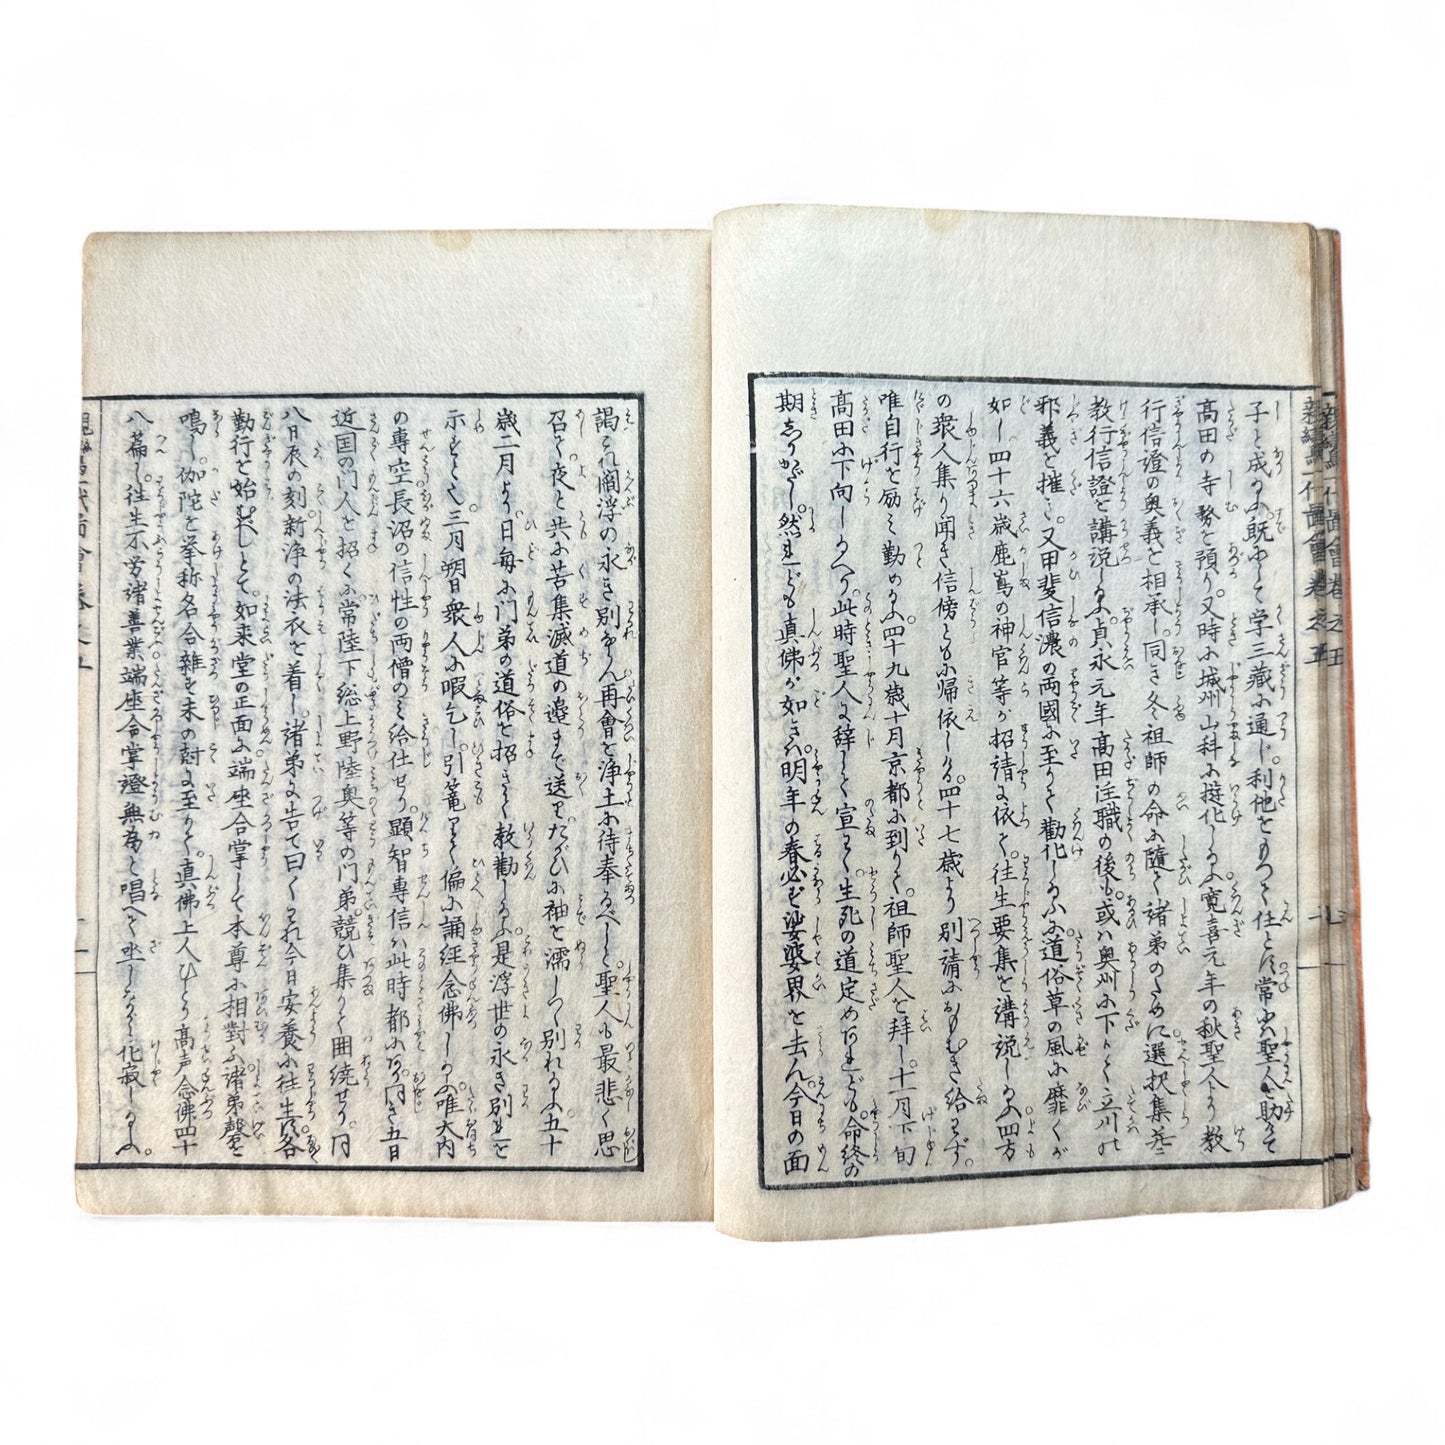 親鸞一代圖會卷之五
子と成るふ既にして学三藏に通じ利他をもつて任とし常に聖人を助けて
髙田の寺務を預り又時に城州山科に遊化しるふ寛喜元年の秋聖人より教
行信證の奥義を相承し同き冬祖師の命に隨て諸弟のために選択集並に
教行信證を講説しるふ貞永元年髙田住職の後も或ハ奥州に下りて立川の
邪義を摧き又甲斐信濃の両國に至りて勸化しるふに道俗草の風に靡くが
如し四十六歳鹿嶌の神官等が招請に依て往生要集を講説しるふ四方
の衆人集り聞き信傍ともに帰依しる四十七歳より別請におもむき給はず
唯自行を励ミ勤めるふ四十九歳十月京都に到りて祖師聖人を拜し十一月下旬
髙田に下向しるへり此時聖人に辞して宣く生死の道定めなしといへども命終の
期しりがたし然といへども真佛が如きハ明年の春必ず娑婆界を去ん今日の面
謁これ閻浮の永き別ならん再會を浄土に待奉るべしと聖人も最悲く思
召て夜と共に苦集滅道の邉まで送りたがひに袖を濡しつ別れるふ五十
歳二月より日毎に門弟の道俗を招きて教勸しるふ是浮世の永き別れを
示すと也三月朔日衆人に暇乞し引篭りて偏に誦経念佛しるふ唯大内
の專空長沼の信性の両僧のミ給仕せり顕智專信ハ此時都にあり同き五日
近国の門人を招くに常陸下総上野陸奥等の門弟競ひ集りて囲繞せり同
八日辰の刻新浄の法衣を着し諸弟に告て曰くわれ今日安養に往生す各
勤行を始むべしとて如来堂の正面に端座合掌して本尊に相對ふ諸弟聲を
鳴し伽陀を挙称名合雜を未の尅に至りて真佛上人ひとり髙声念佛四十
八篇し往生不労諸善業端座合掌證無為と唱へて坐しながら化寂しるふ。